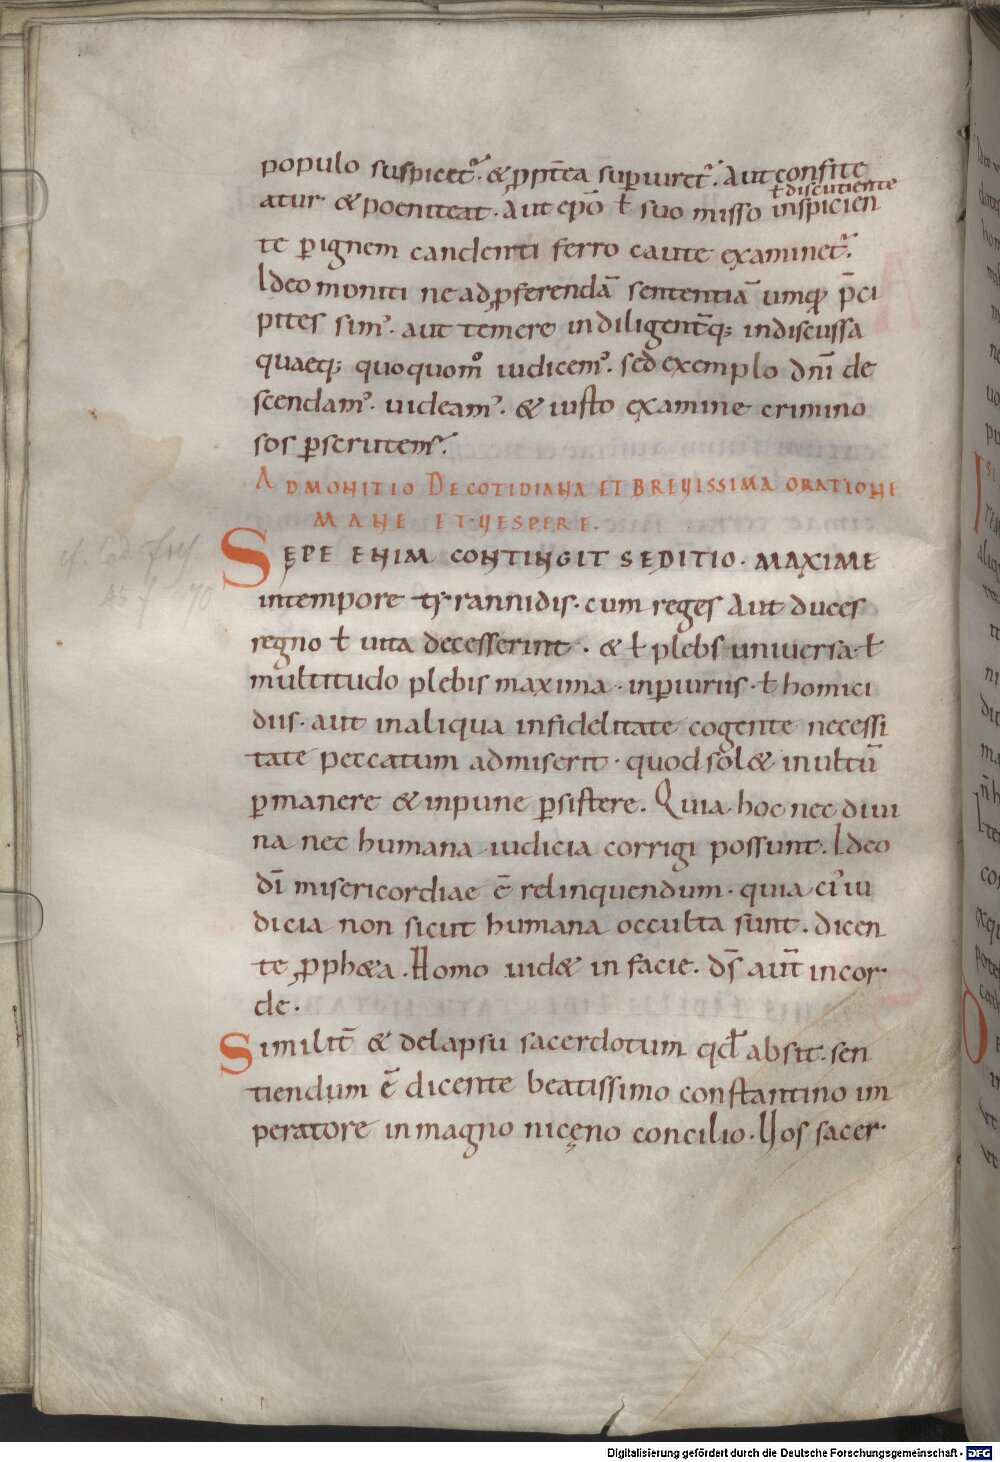 populo suspicet᷑. & ꝓpt̄ea sup̱iuret᷑. Aut confite
atur & poeniteat. Aut ep̄o ł suo misso inspicien
ł discutiente
te p̱ ignem candenti ferro caute examinet᷑.
Ideo moniti ne ad ꝓferendā sententiā umquā p̄ci
pites simꝰ. aut temere indiligent̄q; indiscussa
quaeq; quoquom̊ iudicemꝰ. sed exemplo dn̄i de
scendamꝰ. uideamꝰ. & iusto examine crimino
sos p̱scrutemꝰ.
ADMONITIO DE COTIDIANA ET BREUISSIMA ORATIONE
MANE ET UESPERE.
SĘPE ENIM CONTINGIT SEDITIO. MAXIME
in tempore tyrannidis. cum reges Aut duces
regno ł uita decesserint. & ł plebs uniuersa ł
multitudo plebis maxima. inp̱iuriis. ł homici
diis. aut in aliqua infidelitate cogente necessi
tate peccatum admiserit. quod sol& inultū
p̱manere & inpune p̱sistere. Quia hoc nec diui
na nec humana iudicia corrigi possunt. Ideo
dī misericordiae ē relinquendum. quia eiꝰ iu
dicia non sicut humana occulta sunt. dicen
te ꝓph&a. Homo uid& in facie. ds̄ aut̄ in cor
de.
Similit̄ & de lapsu sacerdotum qd̄ absit. sen
tiendum ē dicente beatissimo constantino im
peratore in magno nicęno concilio. Uos sacer
cf. Cod. Fris
Digitalisierung gefördert durch die Deutsche Forschungsgemeinschaft - DFG